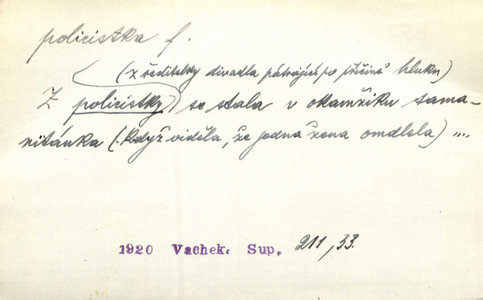 policistka f.
(z ředitelky divadla pátrající po příčině hluku)
Z policistky se stala v okamžiku sama-
ritánka (: když viděla, že jedna žena omdlela) ...
1920 Vachek. Sup, 211, 33.